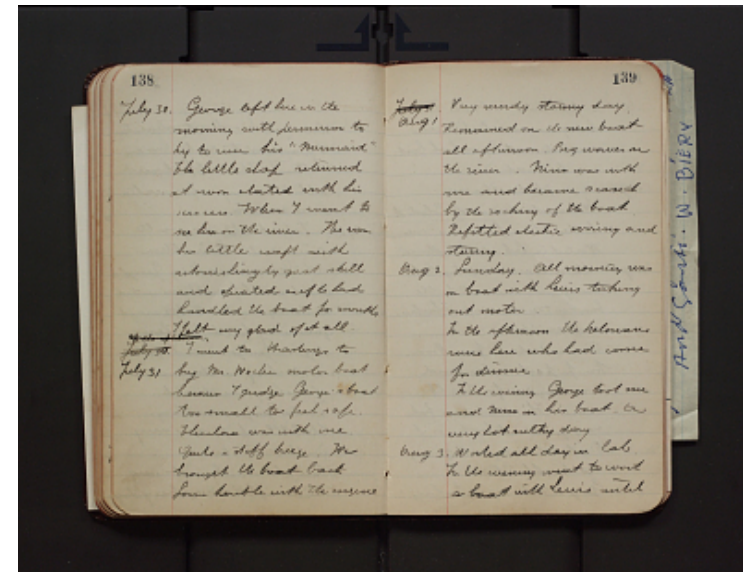 138
July 30. George left here in the
morning with permission to
try to run his "Mermaid"
The little chap returned
at noon elated with his
success. When I went to
see him on the river. He ran
his little craft with
astonishingly great skill
and operated as if he had
handled the boat for months
I felt very glad of it all.
July 31 I went to to
buy Mr. motor boat
because I judge George's boat
too small to feel safe.
was with me
Quite a stiff breeze. We
brought the boat back
Some trouble with the engine
139
Aug 1 Very windy stormy day.
Remained on the new boat
all afternoon. Big waves on
the river. Nina was with
me and became seasick
by the rocking of the boat
Refitted electric wiring and
steering.
Aug 2. Sunday. All morning was
on boat with Lewis
out motor.
In the afternoon the
were here who had come
for dinner
In the evening George took me
and Nina in his boat. A
very hot sultry day
Aug 3. Worked all day in lab.
In the evening went to work
on boat with Lewis until
W. BIERY